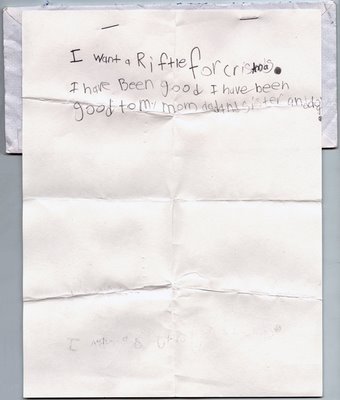 I want a Riftle for crismas.
I have Been good I have been
good to my mom dad my sister and dog
I want a